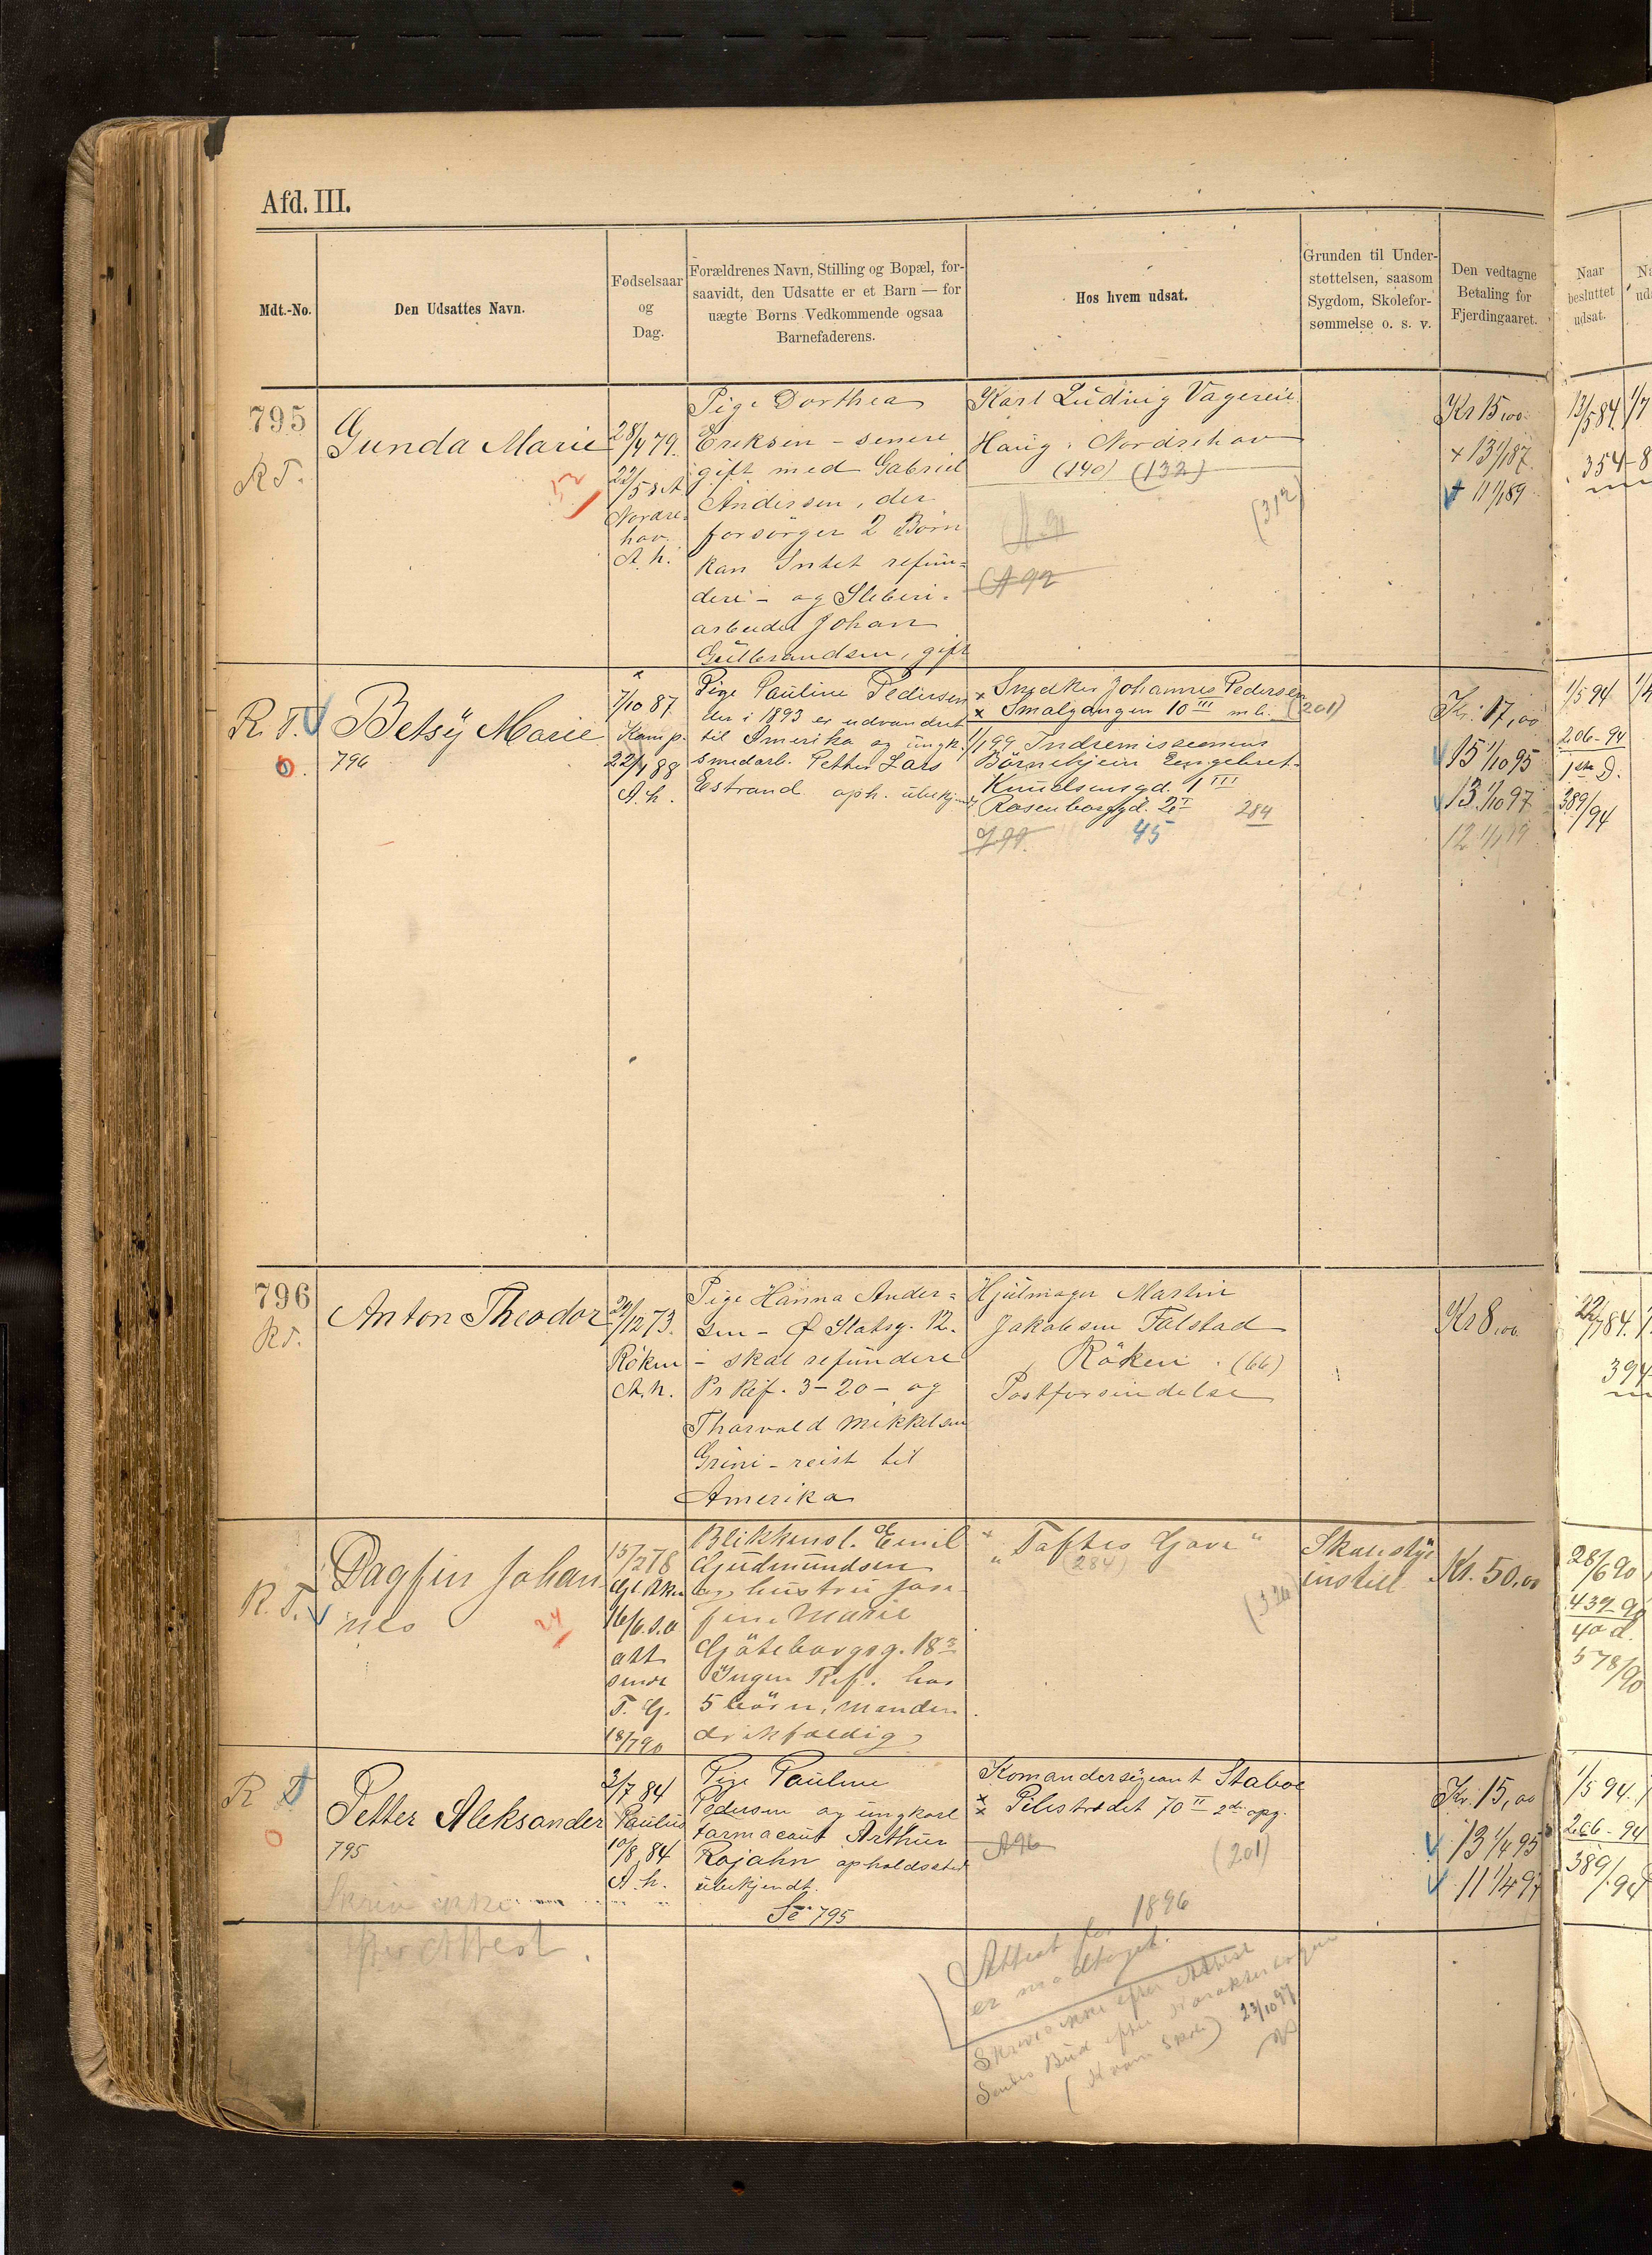 Afd. III.
Mdt.-No.
Den Udsattes Navn.
Fødselsaar
og
Dag.
Forældrenes Navn, Stilling og Bopæl, for-
saavidt, den Udsatte er et Barn — for
uægte Børns Vedkommende ogsaa
Barnefaderens.
Hos hvem udsat.
Grunden til Under-
støttelsen, saasom
Sygdom, Skolefor-
sømmelse o. s. v.
Den vedtagne
Betaling for
Fjerdingaaret.
Naar
besluttet
udsat.
795
R T.
Gunda Marie
52
28/4 79.
22/5 s A
Nordre-
hov.
A. h.
Pige Dorthea
Eriksen - senere
gift med Gabriel
Andersen, der
forsörger 2 Börn
kan Intet refun-
dere - og Steberi-
arbeider Johan
Gulbrandsen, gift
Karl Ludvig Vagereie
Haug i Nordrehov
(140) (132)
(312)
A 91
A 92
Kr 15,00.
+ 13 1/1 87.
+ 11 1/1 89
13/5 84
354-8
R. T.
0.
Betsy Marie
796
7/10 87.
Kamp.
22/4 88
A. h.
Pige Pauline Pedersen
der i 1893 er udvandret
til Amerika og ungk.
smedarb. Petter Lars
Estrand. oph. ubekjendt
x Snedker Johannes Pedersen
x Smalgangen 10 III m b. (201)
1/1 99 Indremissionens
Börnehjem Engebret-
Knudsensgd. 1 III
Rosenborggd. 2 I
284
I 99.
45
Kr: 17,00
15 1/10 95
13 1/10 97
12 1/1 99
1/5 94
206-94
1ste D.
389/94
796
R T.
Anton Theodor
/12 73.
Röken
A. h.
Pige Hanna Ander-
sen - Ø Slotsg. 12.
- skal refundere
Pr Ref. 3-20- og
Thorvald Mikkelsen
Grini - reist til
Amerika
Hjulmager Martin
Jakobsen Falstad
Röken. (66)
Postforsendelse
Kr 8,00
22/7 84.
394
R. T.
Dagfin Johan-
nes
24
15/2 78
Gl. Aker
16/6 s. a
att
sendt
T. G.
18/7 90
Blikkensl. Emil
Gudmundsen
og hustru Jose-
fine Marie
Göteborgsg. 18 3
Ingen Ref. har
5 börn, manden
drikfældig
"Toftes Gave"
(284)
(326)
Skolesty-
instill.
Kr. 50,00
28/6 90
439-90
40 d.
578/90
R T
0
Petter Aleksander
795
Skriv ikke
efter Attest.
3/7 84
Paulus
10/8 84
A. h.
Pige Pauline
Pedersen og ungkarl
farmaceut Arthur
Rojahn opholdssted
ubekjendt.
Se 795
Komandersergeant Staboe
x Pilestrædet 70 II 2den opg.
A 96
(201)
Kr. 15,00
13 1/4 95
11 1/4 97
1/5 94.
206-94
389/94
Attest for 1896
er modtaget.
Skrives ikke efter Attest
Sendes Bud efter Karakterbogen
23/10 97